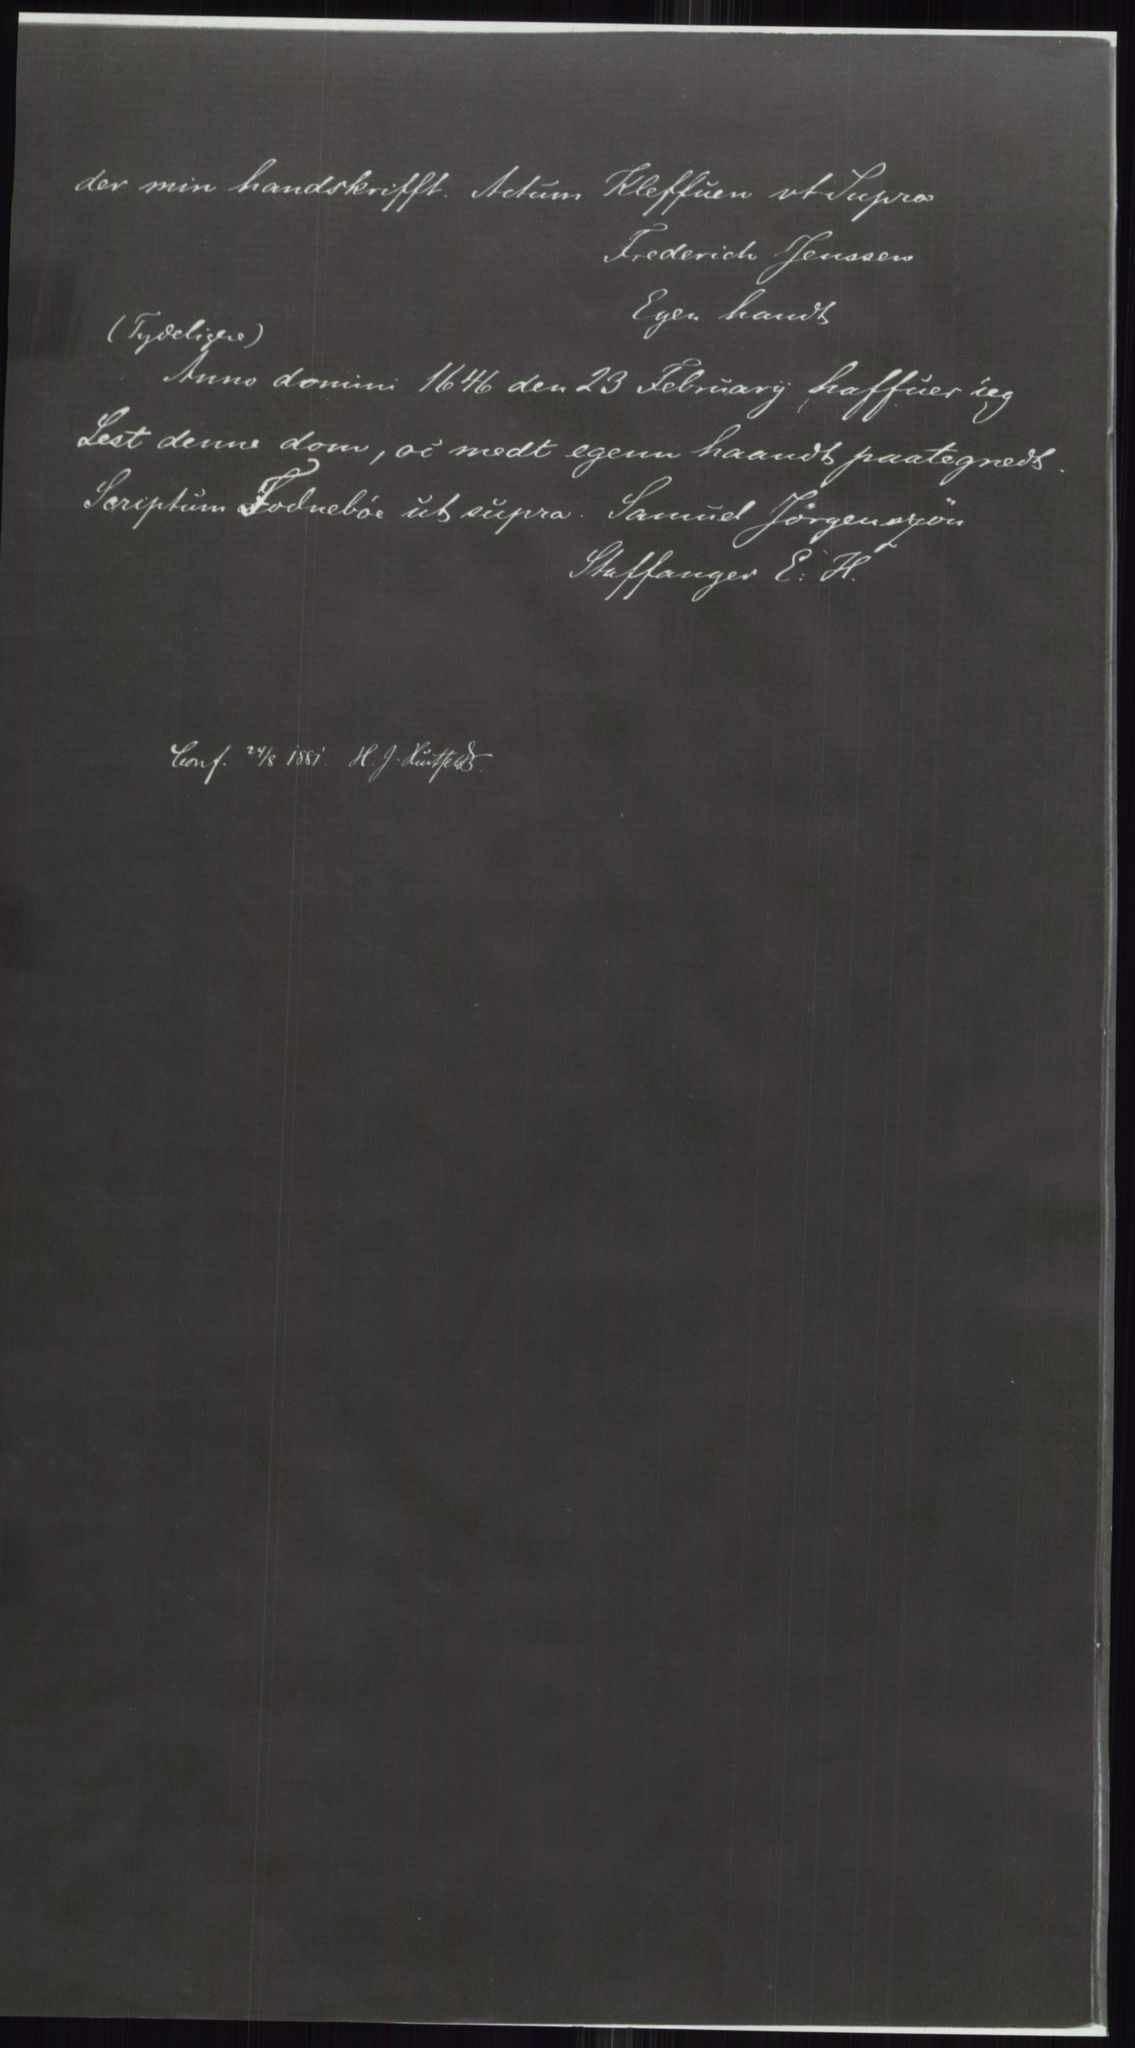 der min handskrifft. Actum Kleffuen vt Supra
Frederich Jenssen
Egen handt
(Tydeligere)
Anno domini 1646 den 23 Februarij haffuer ieg
Lest denne dom, oc medt egenn haandt paategnedt.
Scriptum Fodnebøe ut supra. Samuel Jörgensøn
Staffanger E. H.
Conf. 24/8 1881. H. J. Huitfeldt.